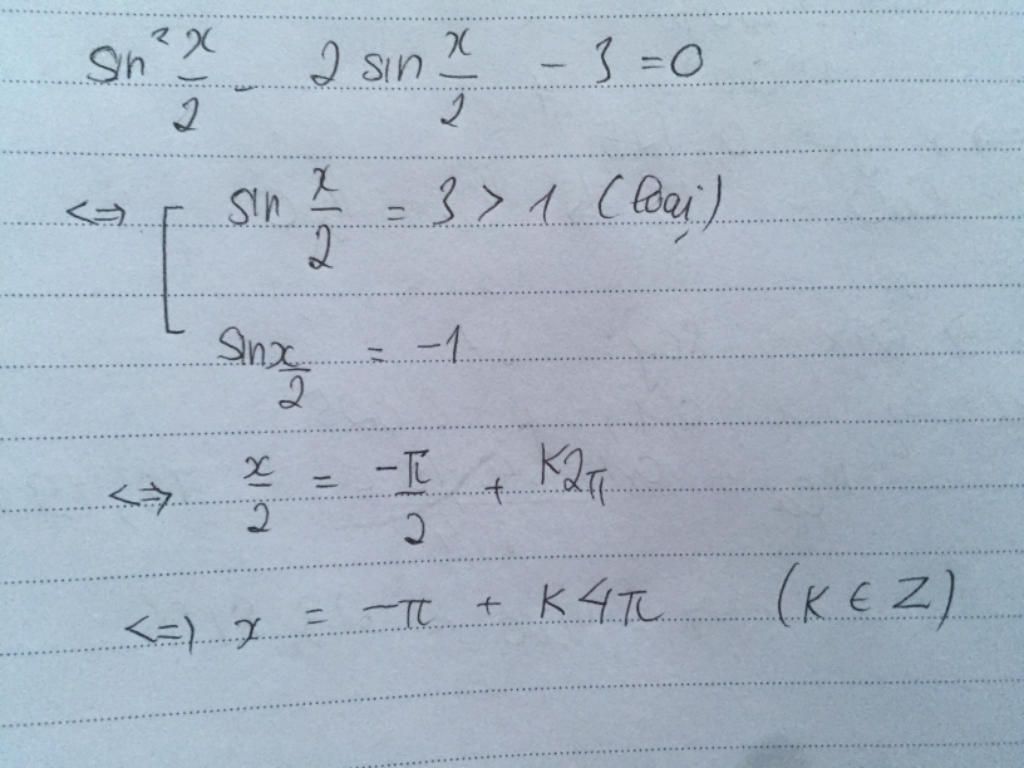 sin² x/2 - 2 sin x/2 - 3 = 0
<=> [ sin x/2 = 3 > 1 (loại)
sin x/2 = -1
<=> x/2 = -π/2 + K2π
<=> x = -π + K4π (K ∈ Z)